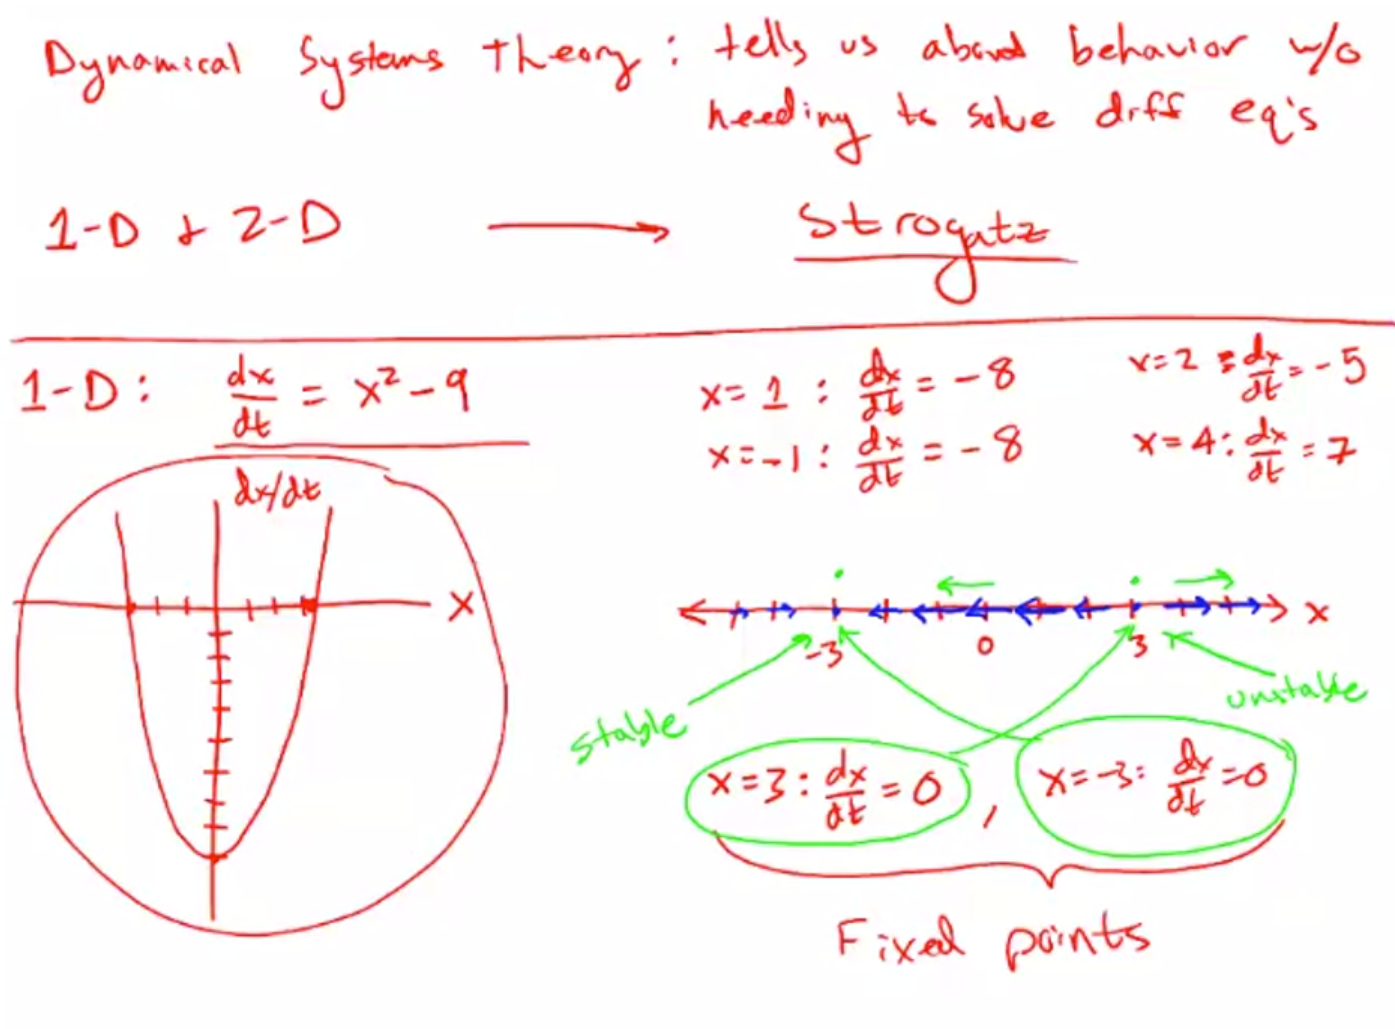 Dynamical Systems Theory : tells us about behavior w/o
needing to solve diff eq's
1-D + 2-D → Strogatz
1-D : dx/dt = x² - 9
dx/dt
x
x = 1 : dx/dt = -8
x = -1 : dx/dt = -8
x=2 : dx/dt = -5
x=4 : dx/dt = 7
-3 0 3 x
stable
unstable
x=3 : dx/dt = 0 , x=-3 : dx/dt = 0
Fixed points